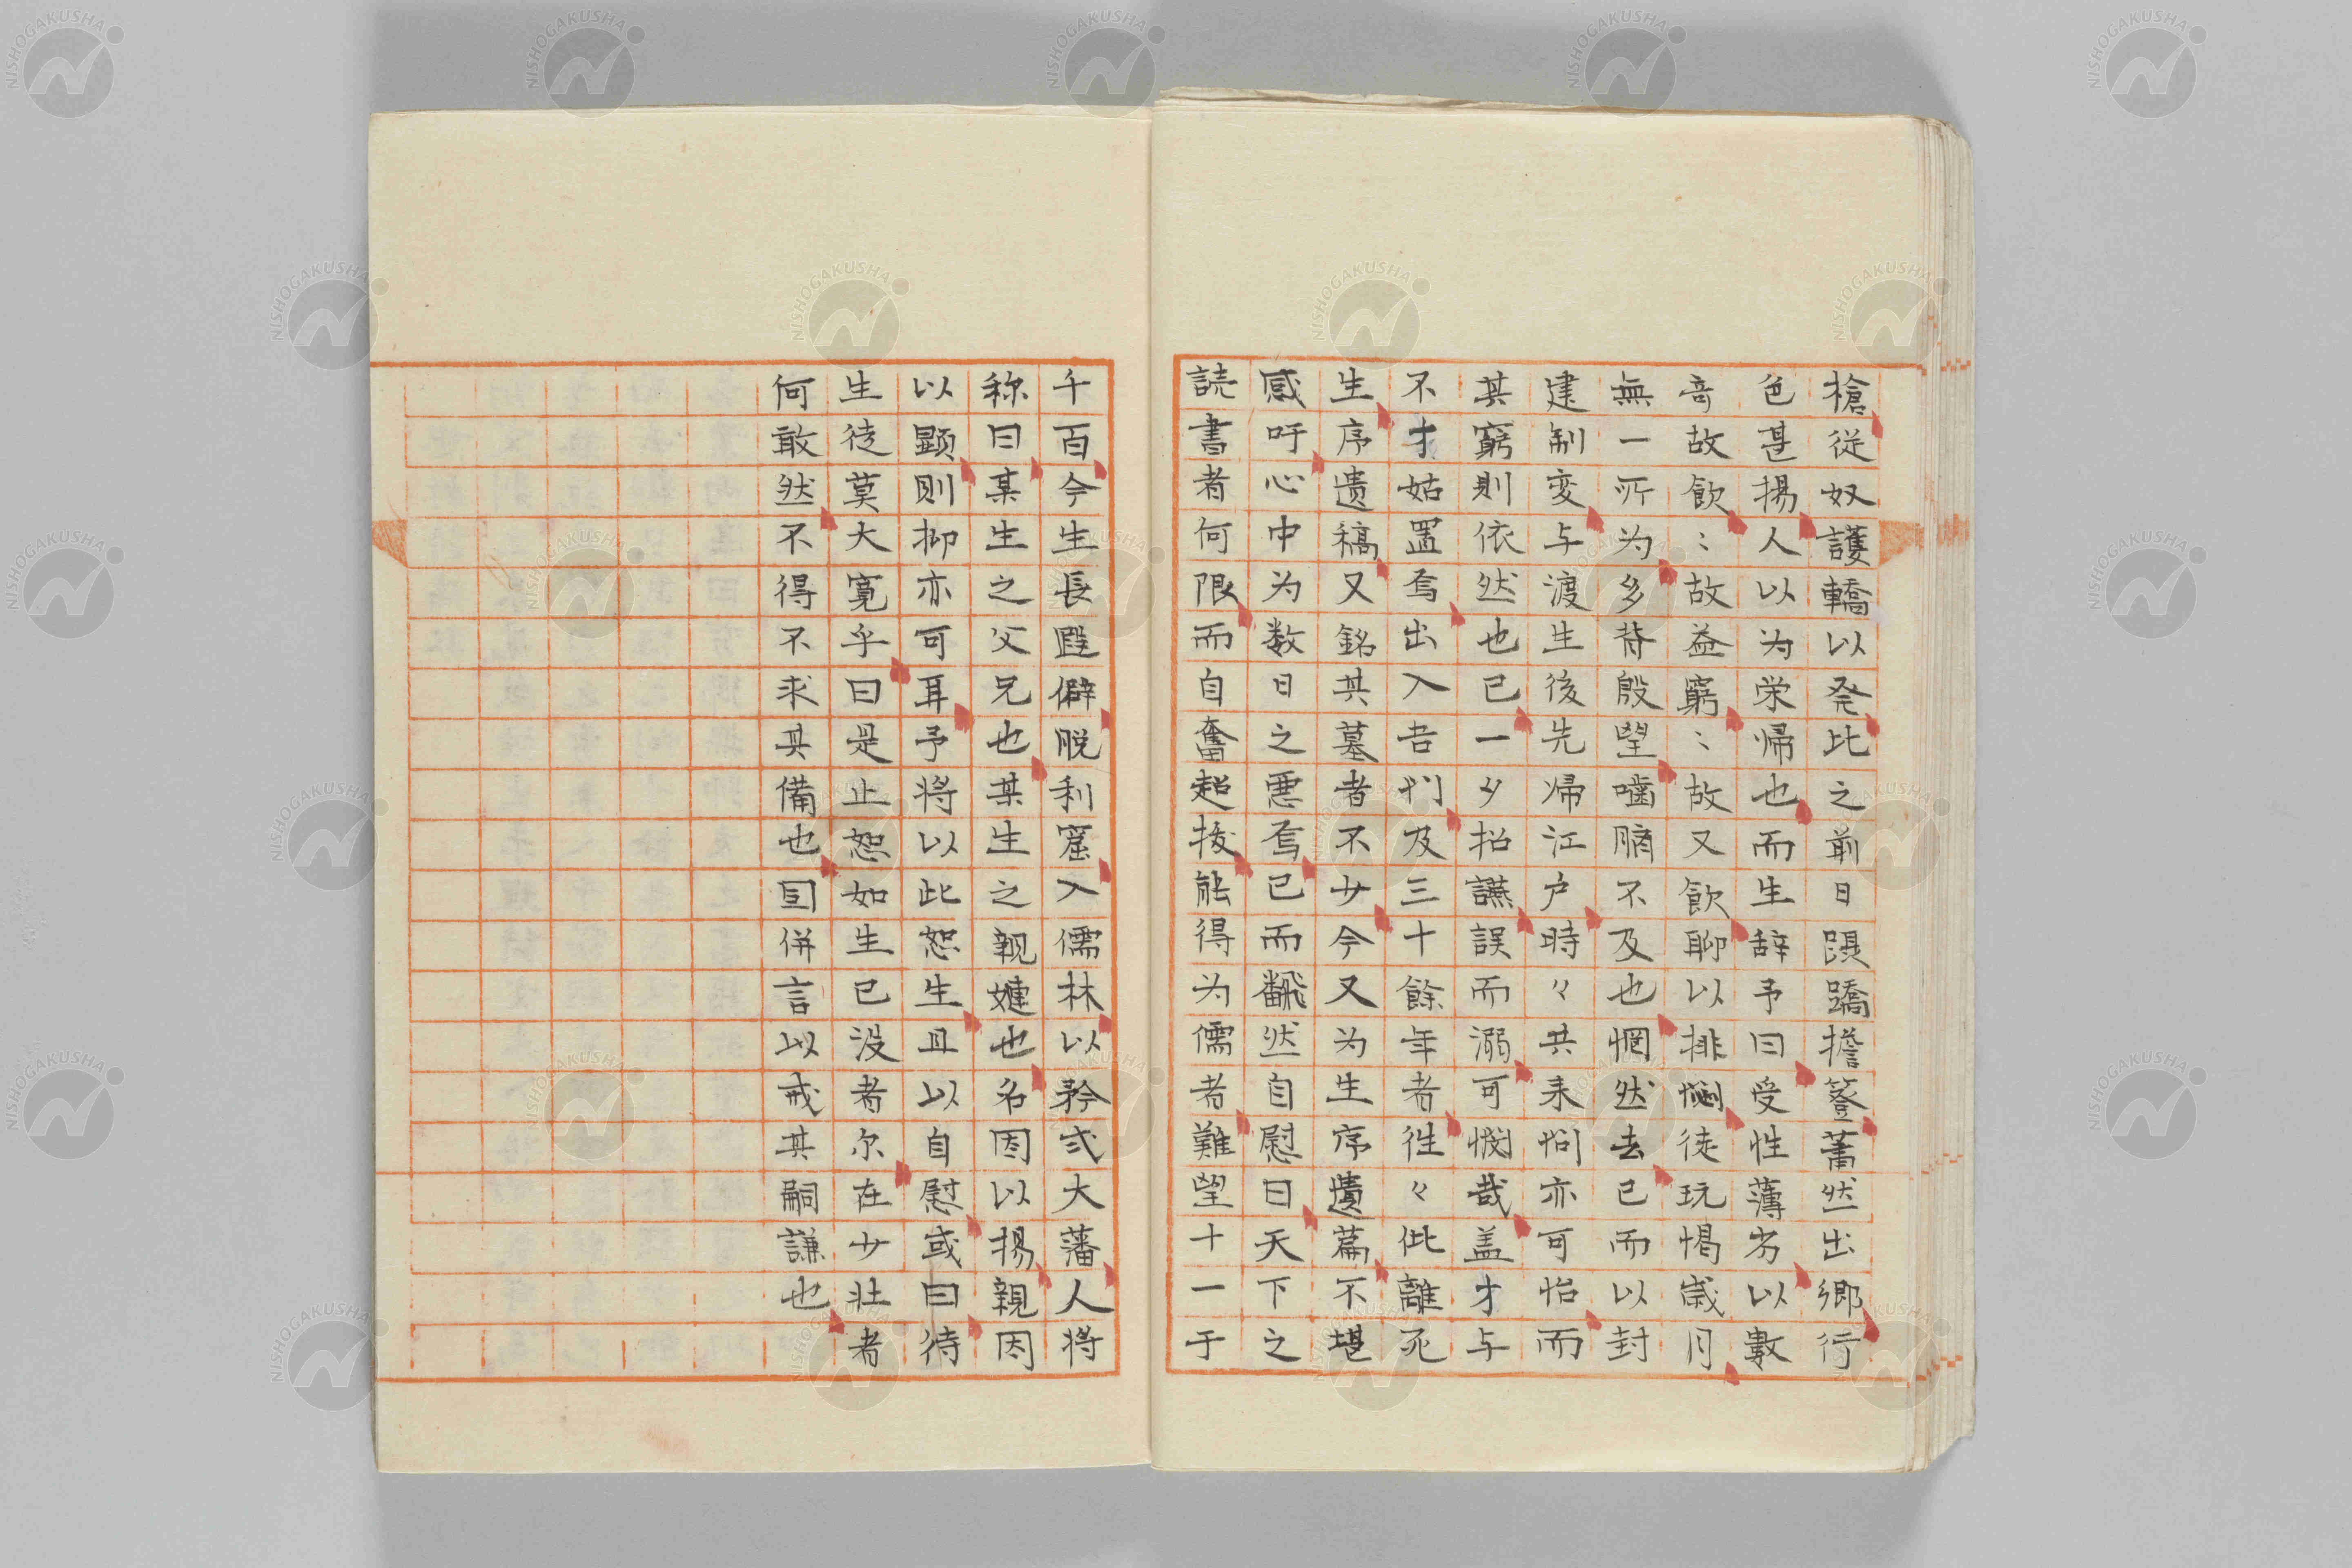 槍従奴護轎以発比之前日躡蹻擔簦蕭然出郷行
色甚揚人以为栄帰也而生辞予曰受性薄劣以數
奇故飲〻故益窮〻故又飲聊以排悶徒玩愒歳月
無一所为多背殷望噛臍不及也惘然去已而以封
建制変与渡生後先帰江戸時々共来悃亦可怡而
其窮則依然也已一夕招讌誤而溺可憫哉盖才与
不才姑置焉出入吾门及三十餘年者徃々仳離死
生序遺稿又銘其墓者不少今又为生序遺篇不堪
感吁心中为数日之悪焉已而飜然自慰曰天下之
読書者何限而自奮超抜能得为儒者難望十一于
千百今生長遐僻脱利窟入儒林以矜式大藩人将
称曰某生之父兄也某生之親婕也名因以揚親因
以顕則抑亦可耳予将以此恕生且以自慰或曰待
生徒莫大寛乎曰是止恕如生已没者尓在少壮者
何敢然不得不求其備也囙併言以戒其嗣謙也
NISHOGAKUSHA